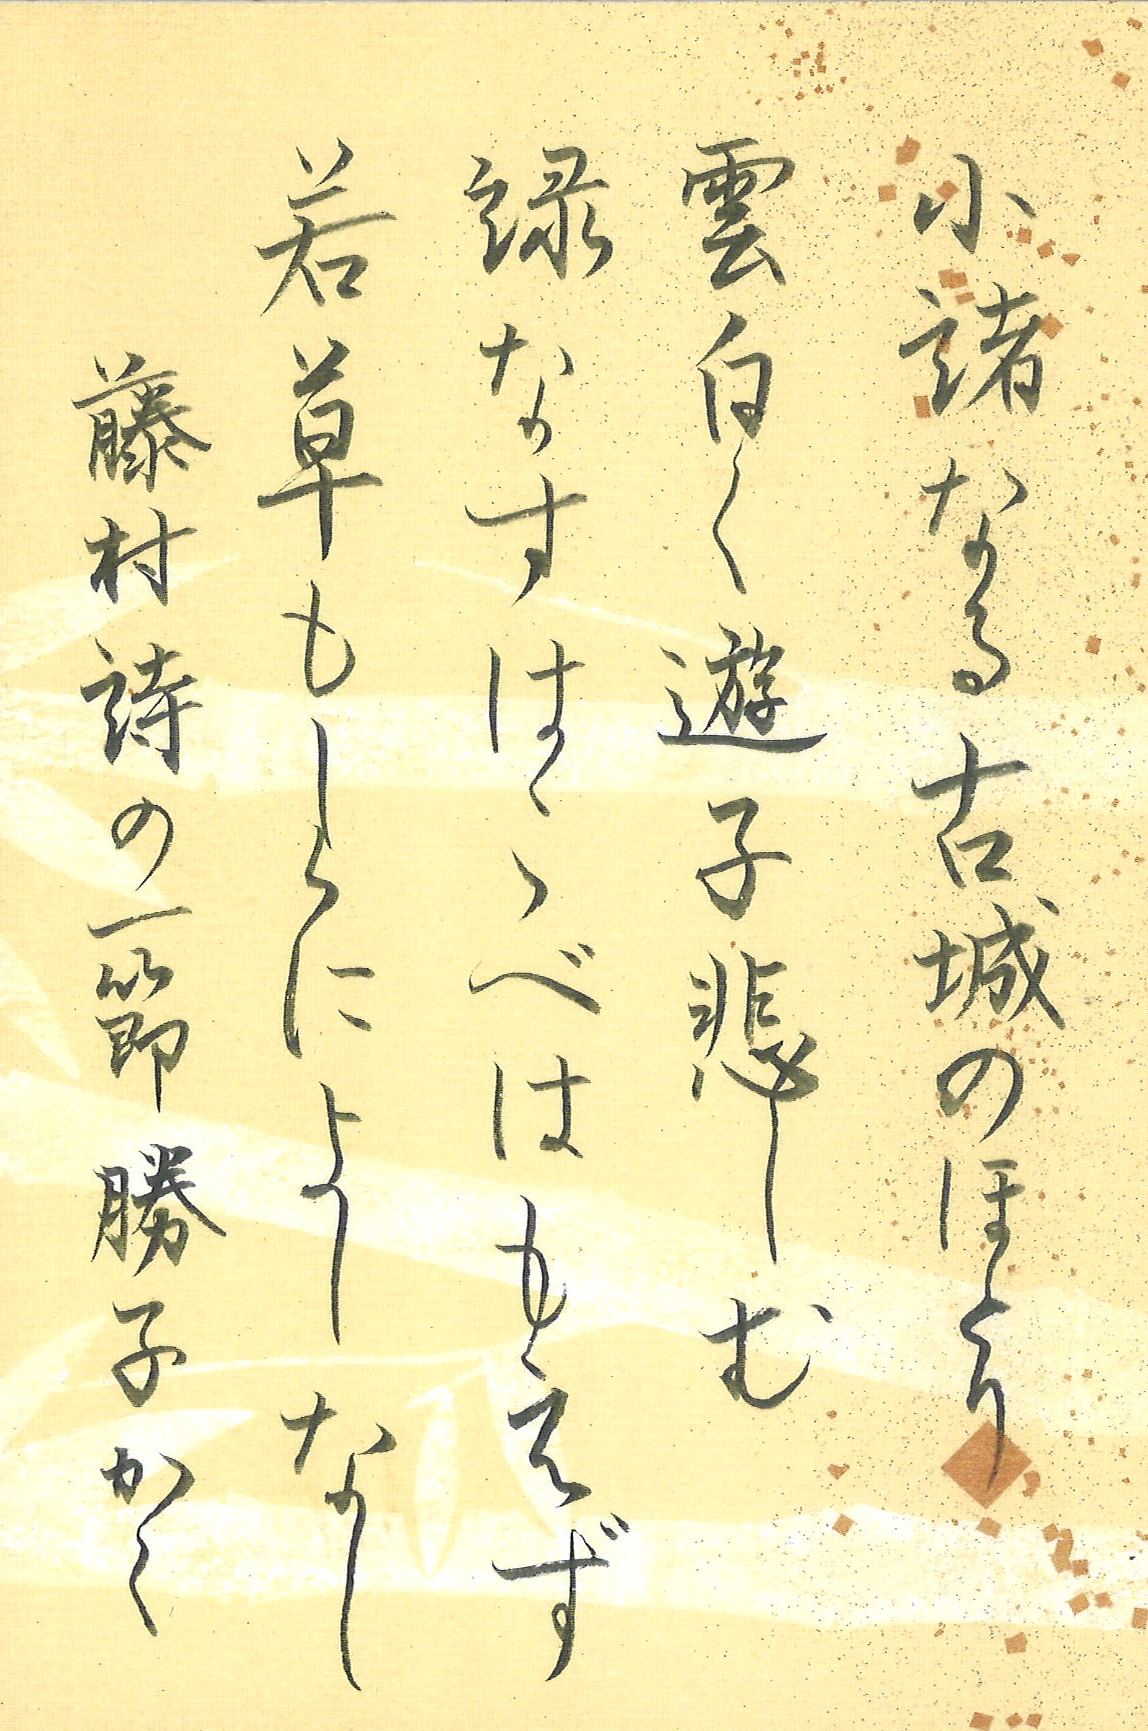 小諸なる古城のほとり
雲白く遊子悲しむ
緑なすはこべはもえず
若草もしくによしなし
藤村詩の一節 勝子かく